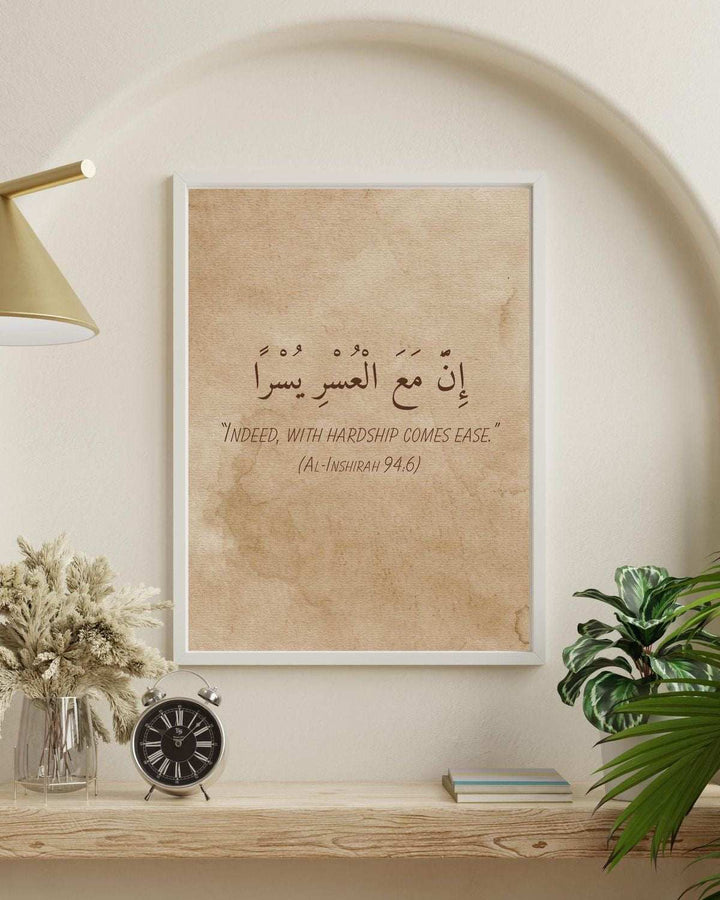 إِنَّ مَعَ الْعُسْرِ يُسْرًا
"Indeed, with hardship comes ease."
(Al-Inshirah 94:6)